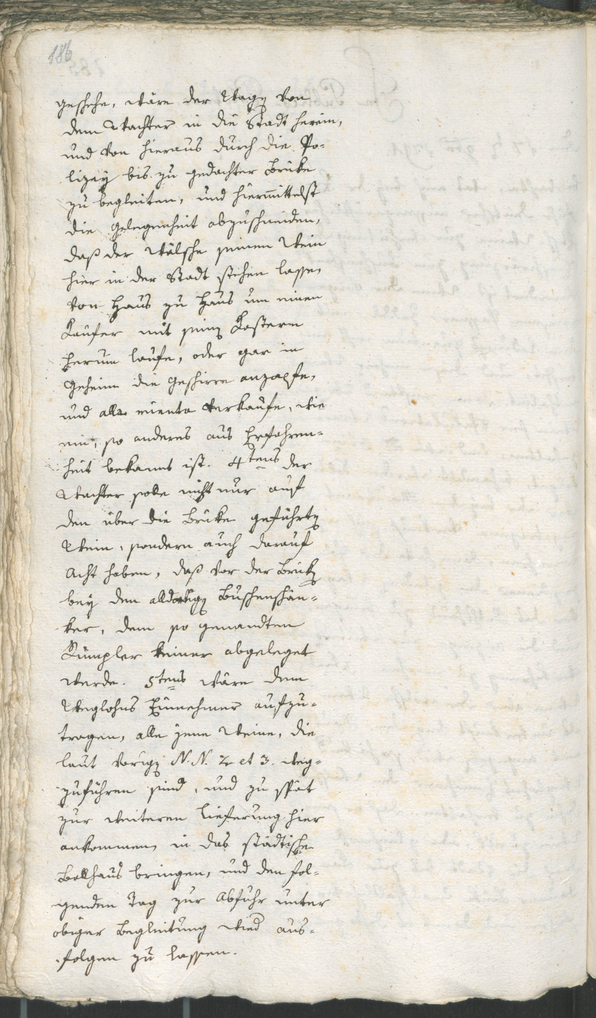 186
geschehe, wäre der Wagen von
dem Wachter in die Stadt herein,
und von hieraus durch die Po-
lizey bis zu gedachter Brüke
zu begleiten, und hiermittelst
die Gelegenheit abzuschneiden,
daß der Wälsche seinen Wein
hier in der Stadt stehen lassen
von Haus zu Haus um einen
Kaüfer mit seinen Kosteren
herum laufe, oder gar in
Geheim die Geschirre anzapfe,
und alla minuta verkaufe, wie
ein, so anderes aus Erfahren-
heit bekannt ist. 4tens der
Wachter solle nicht nur auf
den über die Brüke geführten
Wein, sondern auch darauf
Acht haben, daß vor der Brüke
bey dem alldortigen Buschenschän-
ker, dem so genandten
Rumpler keiner abgeleget
werde. 5tens wäre dem
Weglohns Einnehmer aufzu-
tragen, alle jene Weine, die
laut vorigen N.N. 2 et 3. weg-
zuführen sind, und zu spät
zur weiteren Lieferung hier
ankommen in das städtische
Ballhaus bringen, und den fol-
genden Tag zur Abfuhr unter
obiger Begleitung wied aus-
folgen zu lassen.